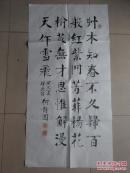 艸木知春不久歸百
般紅紫鬥芳菲楊花
榆荚無才思惟解漫
天作雪飛